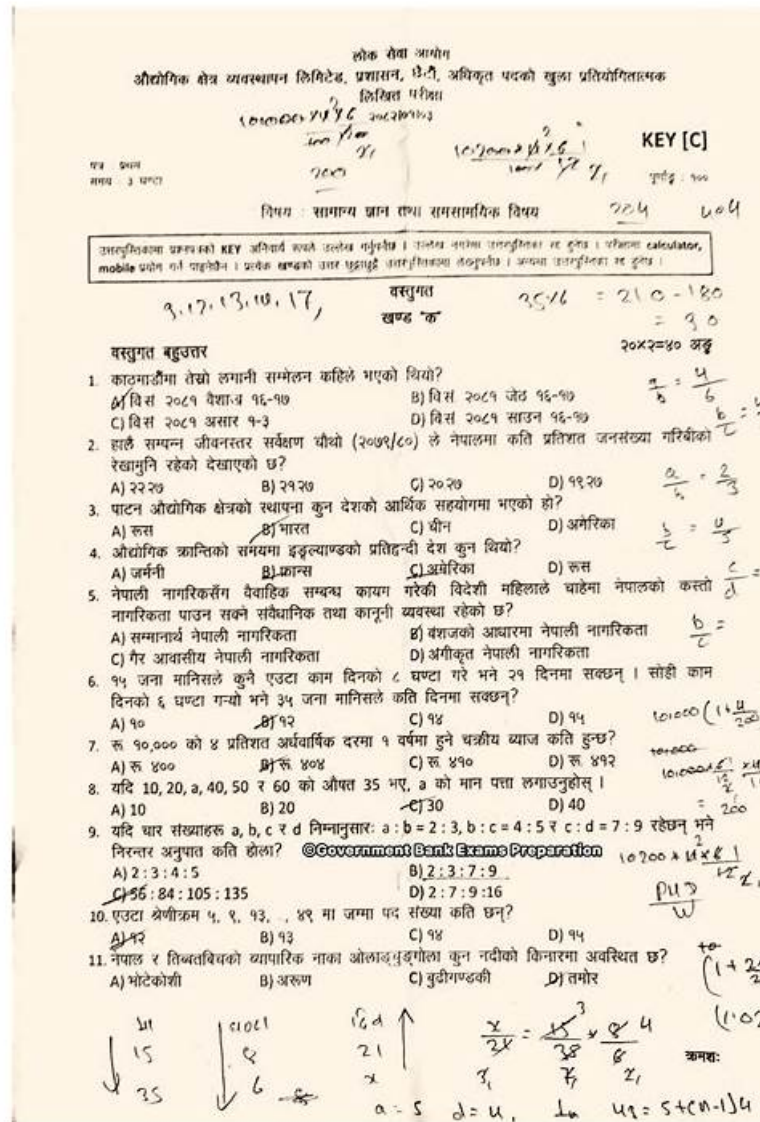 लोक सेवा आयोग
औद्योगिक क्षेत्र व्यवस्थापन लिमिटेड, प्रशासन, छैटौं, अधिकृत पदको खुला प्रतियोगितात्मक
लिखित परीक्षा
KEY [C]
पत्र : प्रथम
समय : ३ घण्टा
पूर्णाङ्क : १००
विषय : सामान्य ज्ञान तथा समसामयिक विषय
उत्तरपुस्तिकामा प्रश्नपत्रको KEY अनिवार्य रूपले उल्लेख गर्नुपर्नेछ । उल्लेख नगरेमा उत्तरपुस्तिका रद्द हुनेछ । परीक्षामा calculator,
mobile प्रयोग गर्न पाइनेछैन । प्रत्येक खण्डको उत्तर छुट्टाछुट्टै उत्तरपुस्तिकामा लेख्नुपर्नेछ । अन्यथा उत्तरपुस्तिका रद्द हुनेछ ।
वस्तुगत
35×6 = 210 - 180
= 30
खण्ड "क"
वस्तुगत बहुउत्तर
२०×२=४० अङ्क
1. काठमाडौंमा तेस्रो लगानी सम्मेलन कहिले भएको थियो?
A) विसं २०८१ वैशाख १६-१७ B) विसं २०८१ जेठ १६-१७
C) विसं २०८१ असार १-३ D) विसं २०८१ साउन १६-१७
2. हालै सम्पन्न जीवनस्तर सर्वेक्षण चौथो (२०७९/८०) ले नेपालमा कति प्रतिशत जनसंख्या गरिबीको
रेखामुनि रहेको देखाएको छ?
A) २२.२७ B) २१.२७ C) २०.२७ D) १९.२७
3. पाटन औद्योगिक क्षेत्रको स्थापना कुन देशको आर्थिक सहयोगमा भएको हो?
A) रूस B) भारत C) चीन D) अमेरिका
4. औद्योगिक क्रान्तिको समयमा इङ्ल्याण्डको प्रतिद्वन्दी देश कुन थियो?
A) जर्मनी B) फ्रान्स C) अमेरिका D) रूस
5. नेपाली नागरिकसँग वैवाहिक सम्बन्ध कायम गरेकी विदेशी महिलाले चाहेमा नेपालको कस्तो
नागरिकता पाउन सक्ने संवैधानिक तथा कानूनी व्यवस्था रहेको छ?
A) सम्मानार्थ नेपाली नागरिकता B) वंशजको आधारमा नेपाली नागरिकता
C) गैर आवासीय नेपाली नागरिकता D) अंगीकृत नेपाली नागरिकता
6. १५ जना मानिसले कुनै एउटा काम दिनको ८ घण्टा गरे भने २१ दिनमा सक्छन् । सोही काम
दिनको ६ घण्टा गऱ्यो भने ३५ जना मानिसले कति दिनमा सक्छन्?
A) १० B) १२ C) १४ D) १५
7. रू १०,००० को ४ प्रतिशत अर्धवार्षिक दरमा १ वर्षमा हुने चक्रीय ब्याज कति हुन्छ?
A) रू. ४०० B) रू. ४०४ C) रू. ४१० D) रू. ४१२
8. यदि 10, 20, a, 40, 50 र 60 को औषत 35 भए, a को मान पत्ता लगाउनुहोस् ।
A) 10 B) 20 C) 30 D) 40
9. यदि चार संख्याहरू a, b, c र d निम्नानुसारः a : b = 2 : 3, b : c = 4 : 5 र c : d = 7 : 9 रहेछन् भने
निरन्तर अनुपात कति होला? @Government Bank Exams Preparation
A) 2 : 3 : 4 : 5 B) 2 : 3 : 7 : 9
C) 56 : 84 : 105 : 135 D) 2 : 7 : 9 :16
10. एउटा श्रेणीक्रम ५, ९, १३, ., ४९ मा जम्मा पद संख्या कति छन्?
A) १२ B) १३ C) १४ D) १५
11. नेपाल र तिब्बतबिचको व्यापारिक नाका ओलाङ्चुङ्गोला कुन नदीको किनारमा अवस्थित छ?
A) भोटेकोशी B) अरूण C) बुढीगण्डकी D) तमोर
क्रमशः
15 8 21
35 6 x
a = 5 d = 4, 49 = 5+(n-1)4